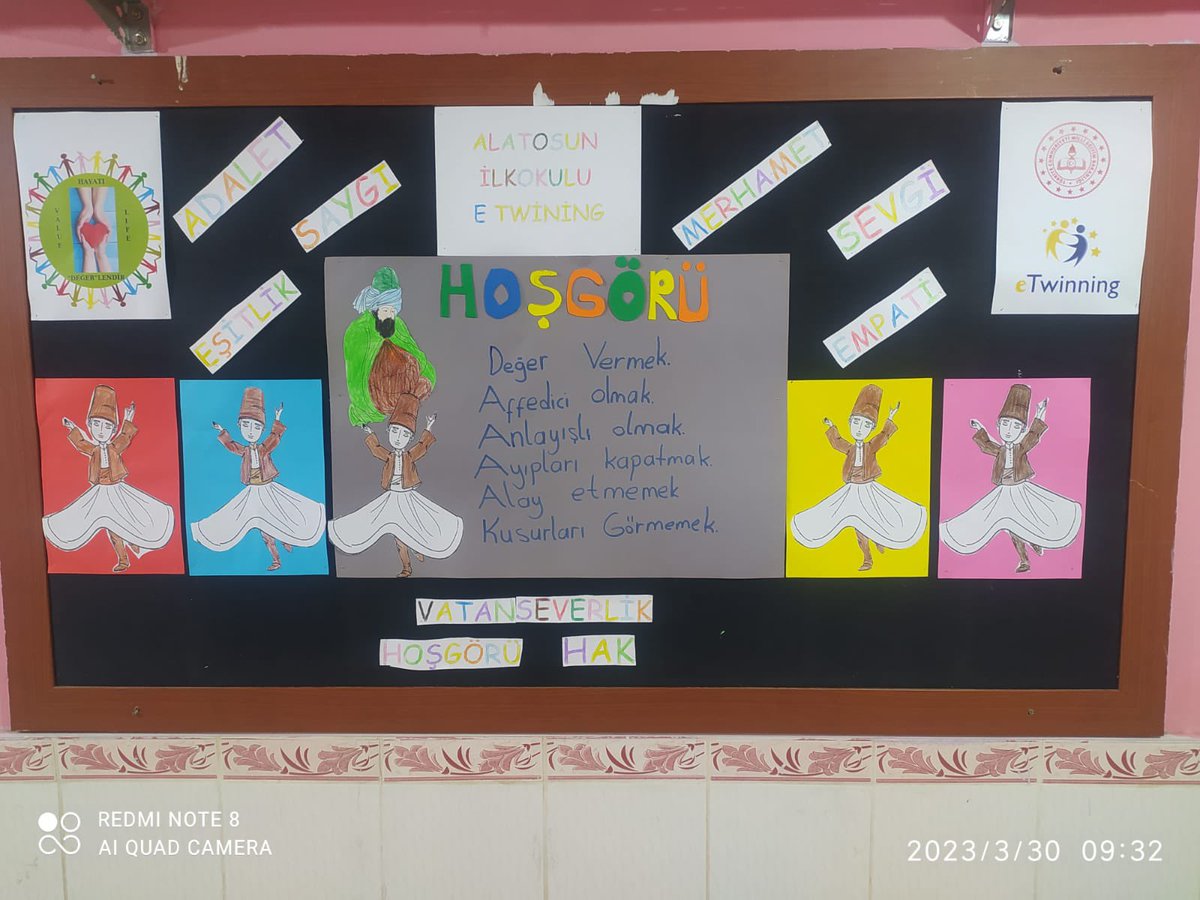 HAYATI
VALUE
LIFE
"DEĞER"LENDİR
ADALET
SAYGI
EŞİTLİK
ALATOSUN
İLKOKULU
E TWİNİNG
MERHAMET
SEVGİ
EMPATİ
eTwinning
HOŞGÖRÜ
Değer Vermek.
Affedici olmak.
Anlayışlı olmak.
Ayıpları kapatmak.
Alay etmemek
Kusurları Görmemek.
VATANSEVERLİK
HOŞGÖRÜ HAK
REDMI NOTE 8
AI QUAD CAMERA
2023/3/30 09:32